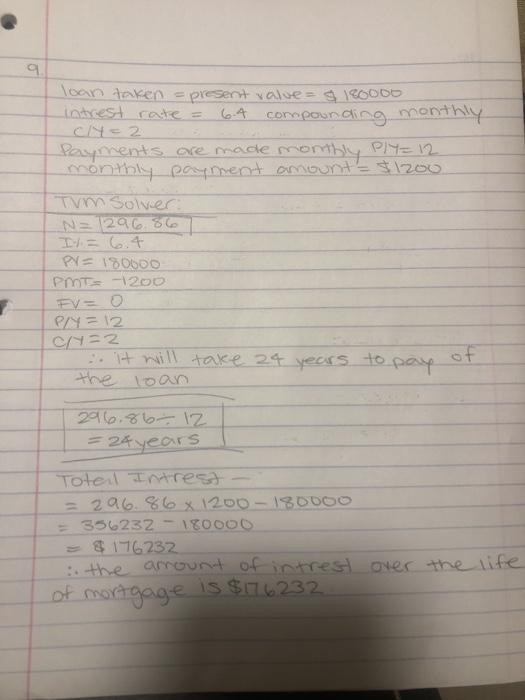 9.
loan taken = present value = $180000
intrest rate = 6.4 compounding monthly
C/Y = 2
Payments are made monthly P/Y = 12
monthly payment amount = $1200
TVM Solver:
N = 296.86
I% = 6.4
PV = 180000
PMT = -1200
FV = 0
P/Y = 12
C/Y = 2
∴ it will take 24 years to pay of
the loan
296.86 ÷ 12
= 24 years
Total Intrest -
= 296.86 x 1200 - 180000
= 356232 - 180000
= $176232
∴ the amount of intrest over the life
of mortgage is $176232